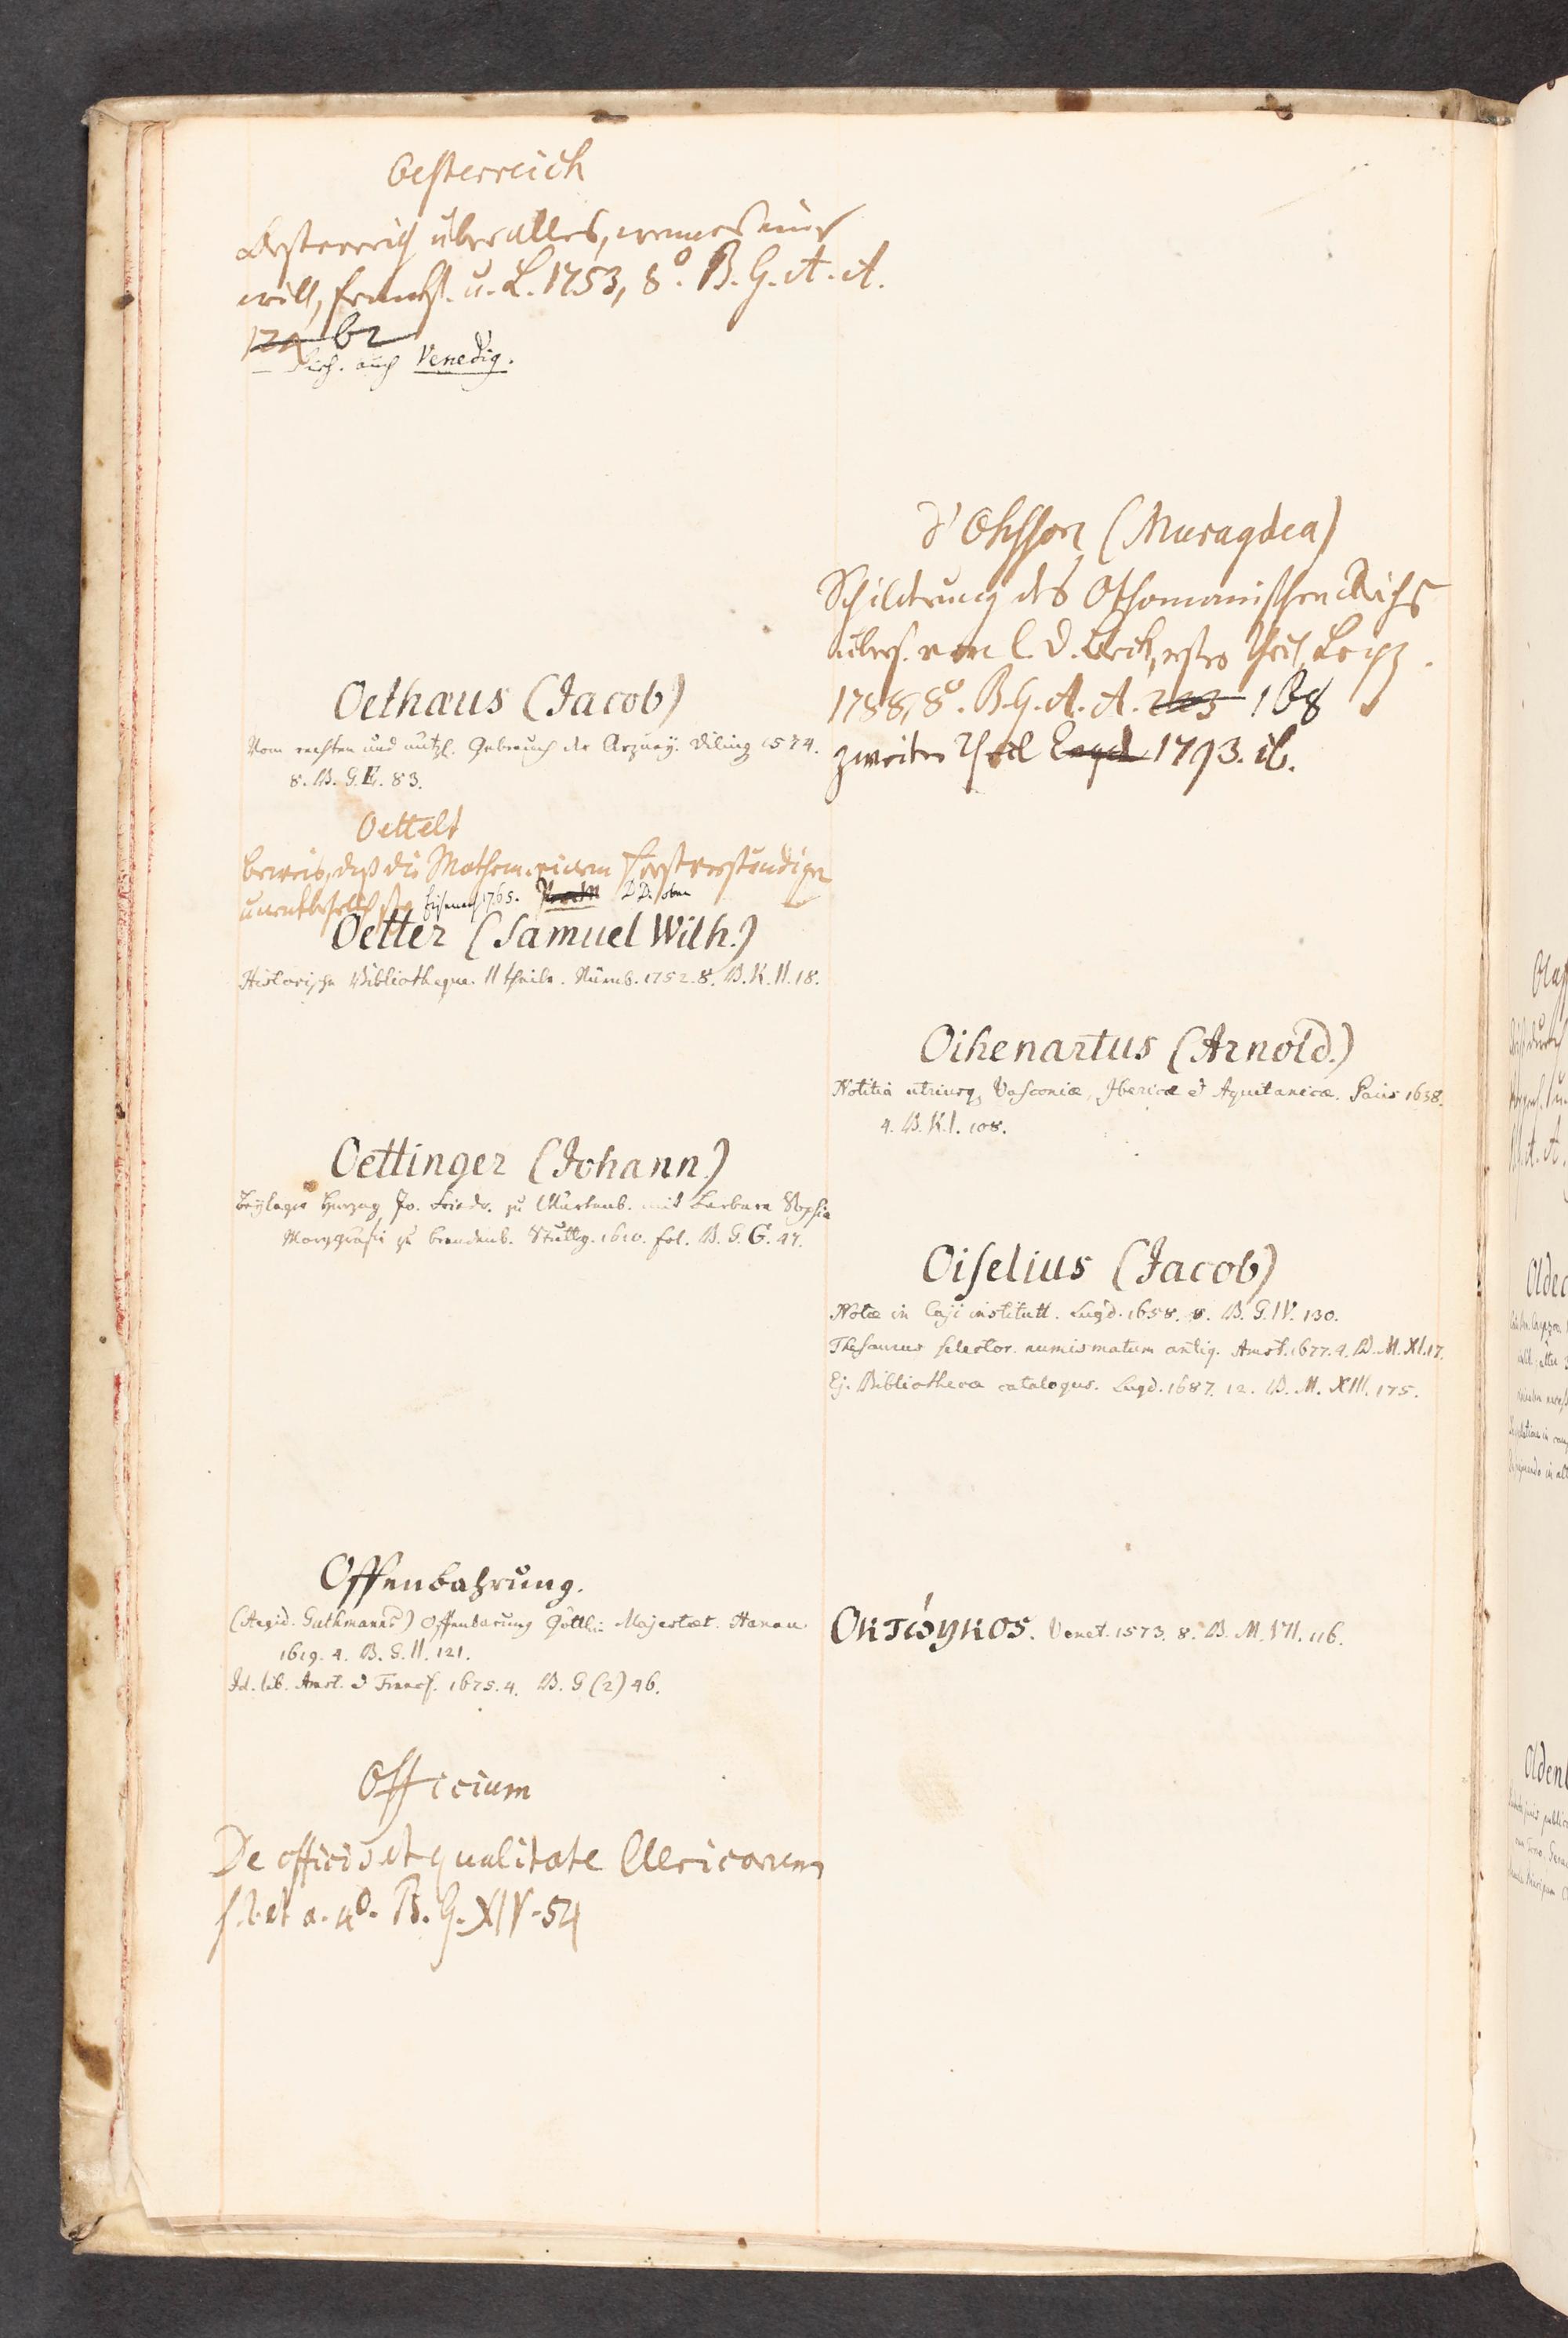 Oesterreich
Oesterreich über alles, wenn es nur
will, Frankf. u. L. 1753, 8°. B. G. A. A.
129 b2
Sieh. auch Venedig.
Oethæus (Jacob)
Vom rechten und nützl. Gebrauch der Arzney. Diling 1574.
8. B. G. E. 83.
Oettelt
Beweis, daß die Mathem. einem Forstverständigen
unentbehrlich sey Eisenach 1765. DD. oben
Oetter (Samuel Wilh.)
Historische Bibliotheque. II theile. Nürnb. 1752. 8. B. K. II. 18.
Oettinger (Johann.)
Beylager Herzog Jo. Friedr. zu Würtemb. mit Barbara Sophia
Marggräfin zu Brandenb. Stuttg. 1610. fol. B. G. G. 47.
Offenbahrung.
(Aegid. Guthmanns) Offenbarung Göttlicher Majestæt. Hanau
1619. 4. B. G. II. 121.
Id. lib. Amst. & Francf. 1675. 4. B. G (2) 46.
Officium
De officio et qualitate Clericorum
s. l. et a. 4°. B. G. XIV. 54
d'Ohsson (Muragdea)
Schilderung des Othomanischen Reichs
übers. von C. D. Beck, erster Theil, Leipz.
1788, 8°. B. G. A. A. 223 1 B8
zweiter Theil 1793. ib.
Oihenartus (Arnold.)
Notitia utriusq. Vasconiæ, Ibericæ & Aquitanicæ. Paris 1638.
4. B. K. I. 108.
Oiselius (Jacob)
Notæ in Caji institutt. Lugd. 1658. 8. B. G. IV. 130.
Thesaurus selector. numismatum antiq. Amst. 1677. 4. B. M. XI. 17.
Ej. Bibliothecæ catalogus. Lugd. 1687. 12. B. M. XIII. 175.
Οκτώηκος. Venet. 1573. 8. B. M. VII. 116.